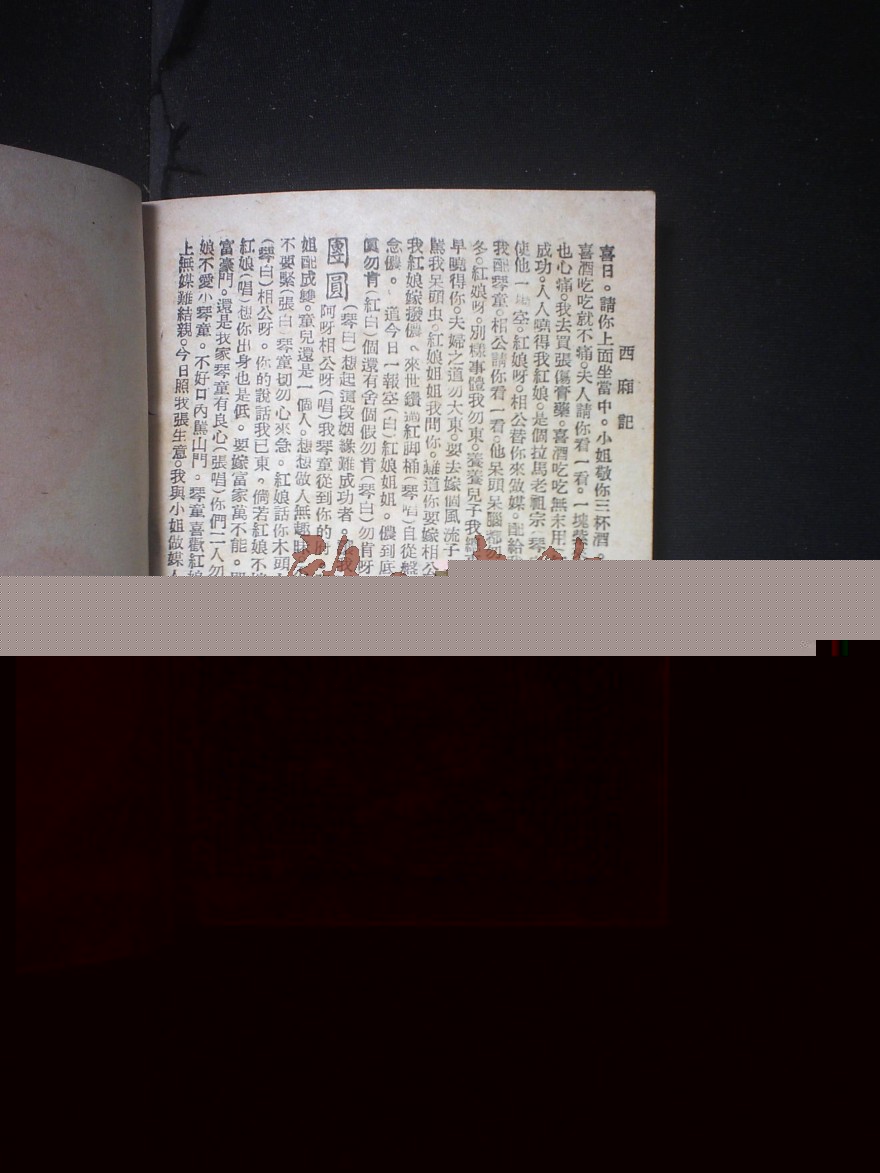 西廂記
喜日。請你上面坐當中。小姐敬你三杯酒。
喜酒吃吃就不痛。夫人請你看一看。一塊
也心痛。我去買張傷膏藥。喜酒吃吃無未用
成功。人人曉得我紅娘。是個拉馬老祖宗。琴
使他一場空。紅娘呀。相公替你來做媒。配給
我配琴童。相公請你看一看。他呆頭呆腦
冬。紅娘呀。別樣事體我勿東。養養兒子我
早曉得你。夫婦之道勿大東。要去嫁個風流子
罵我呆頭虫。紅娘姐姐我問你。難道你要嫁相公
我紅娘嫁撥儂。來世鑽過紅脚桶(琴唱)自從
念儂。道今日一報空(白)紅娘姐姐。儂到底
眞勿肯(紅白)個還有舍個假勿肯(琴白)勿肯呀
團圓
(琴白)想起這段姻緣難成功者。
阿呀相公呀(唱)我琴童從到你的
姐配成雙。童兒還是一個人。想想做人無趣味
不要緊(張白)琴童切勿心來急。紅娘話你木頭
(琴白)相公呀。你的說話我已東。倘若紅娘不
紅娘(唱)想你出身也是低。要嫁富家萬不能。
富豪門。還是我家琴童有良心(張唱)你們二人勿
娘不愛小琴童。不好口內罵山門。琴童喜歡紅娘
上無媒難結親。今日照我張生意。我與小姐做媒人